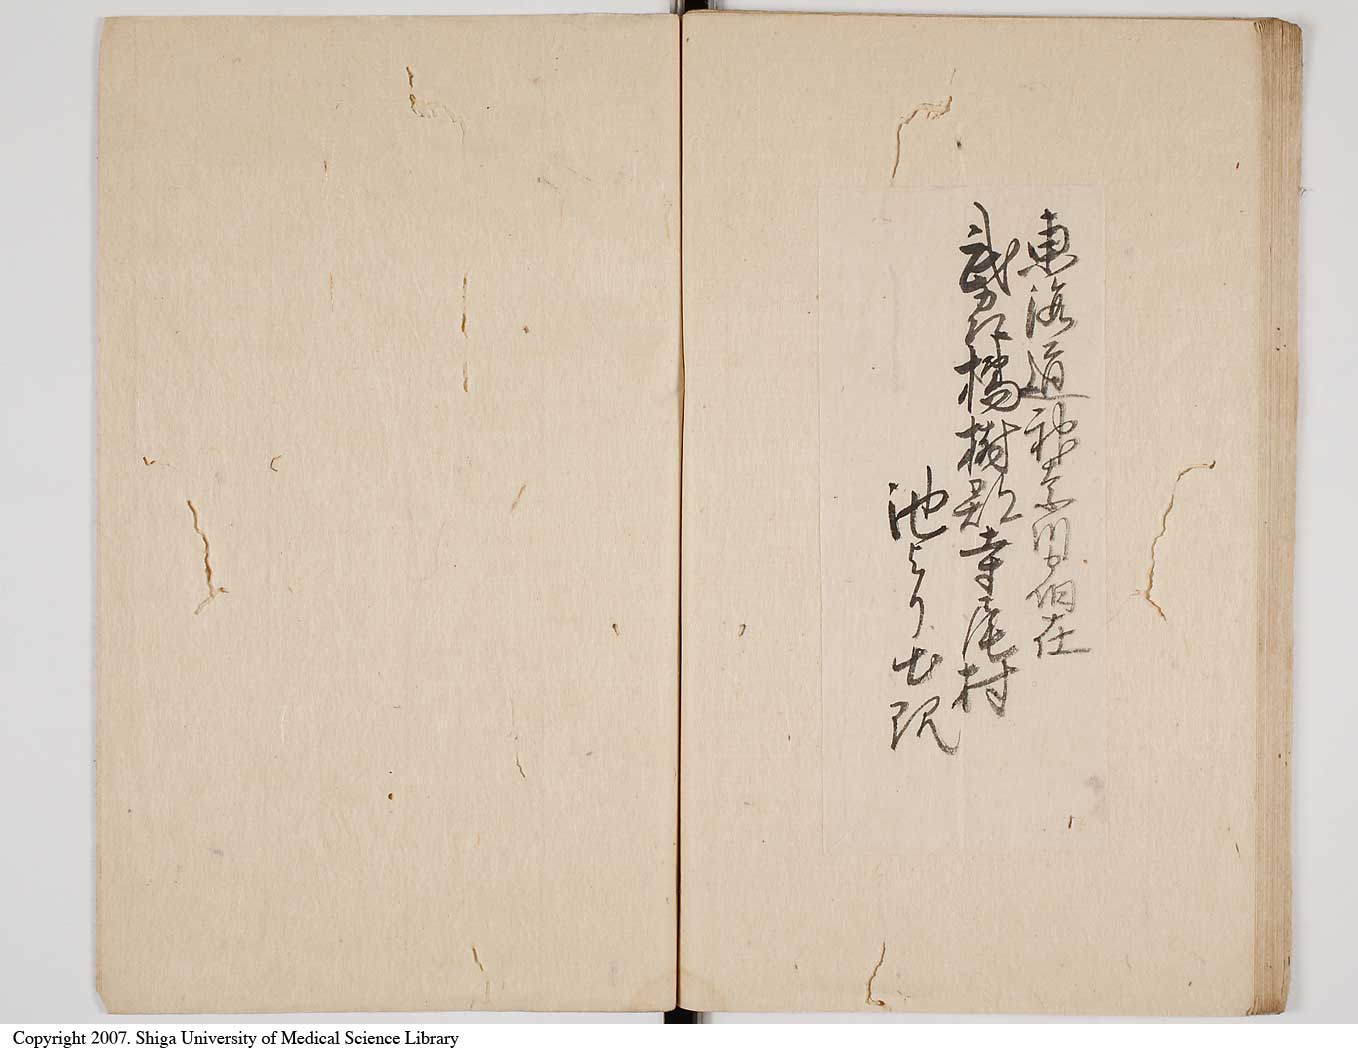 東海道神奈川宿在
武州橘樹郡寺尾村
池より出現
Copyright 2007. Shiga University of Medical Science Library